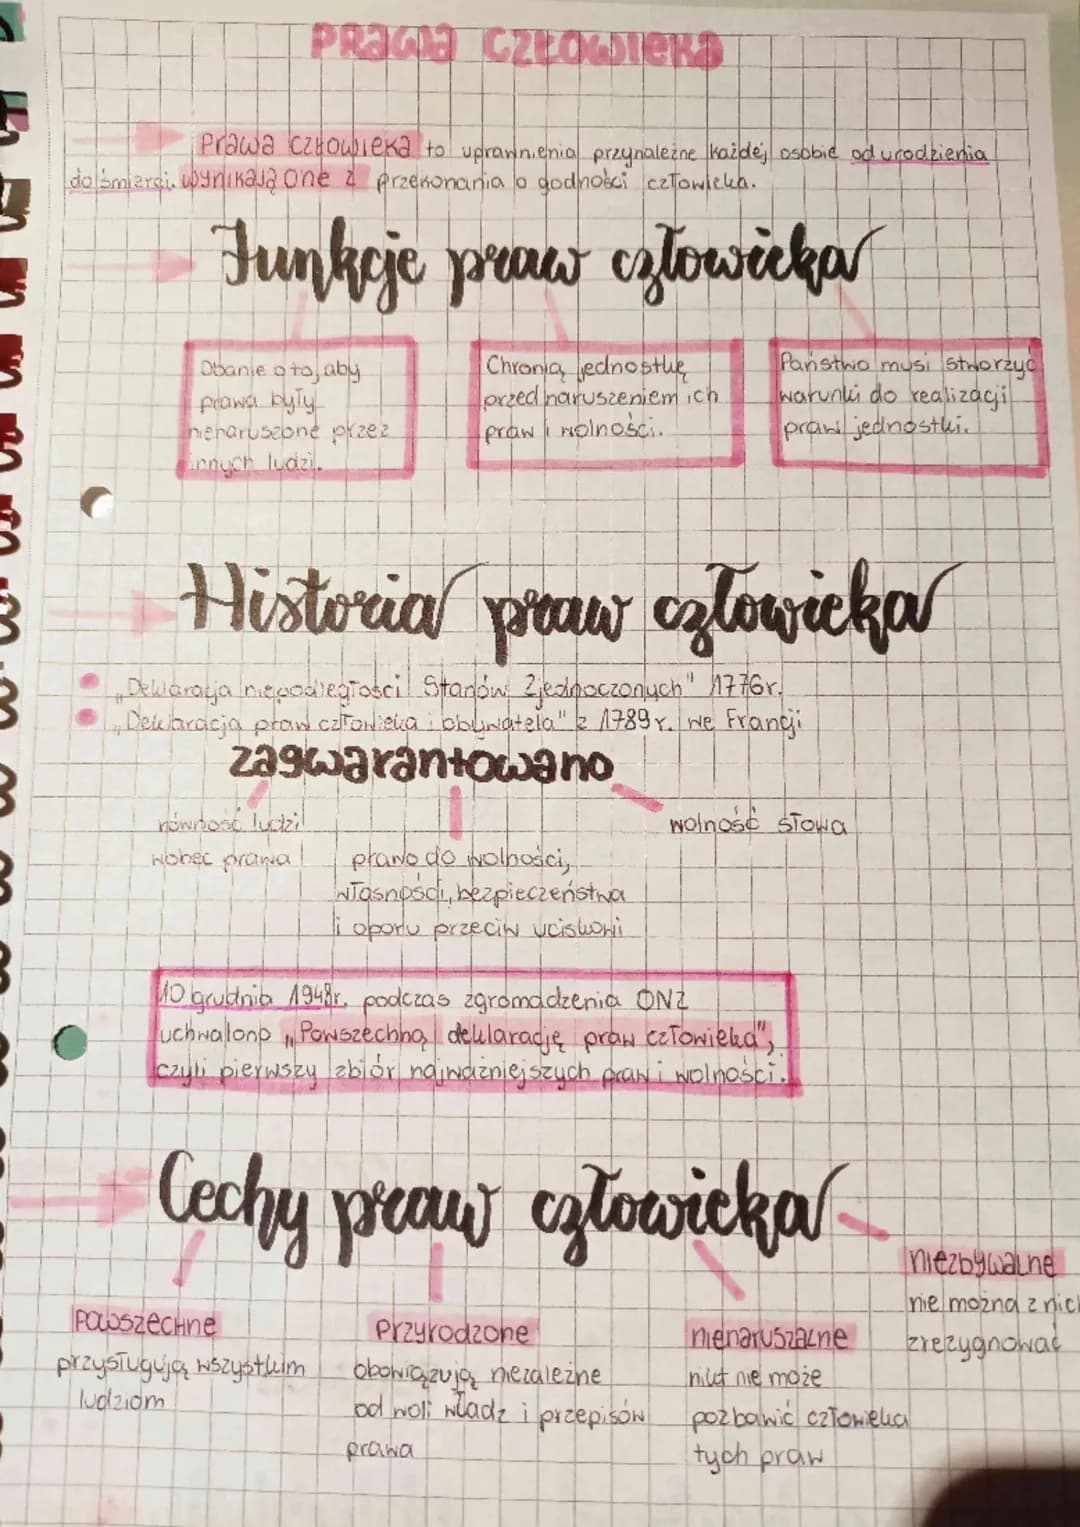 PRAWA CZŁOWIEKA
Prawa człowieka to uprawnienia przynależne każdej osobie od urodzienia
do śmierci. Wynikają one z przekonania o godności człowieka.
Funkcje praw człowieka
Dbanie o to, aby
prawa były
nienaruszone przez
innych ludzi.
Chronią jednostkę
przed naruszeniem ich
praw i wolności.
Państwo musi stworzyć
warunki do realizacji
praw jednostki.
Historia praw człowieka
„Deklaracja niepodległości Stanów Zjednoczonych" 1776r.
„Deklaracja praw człowieka i obywatela" z 1789r. we Francji
zagwarantowano
równość ludzi
wobec prawa
prawo do wolności,
własności, bezpieczeństwa
i oporu przeciw uciskowi
wolność słowa
10 grudnia 1948r. podczas zgromadzenia ONZ
uchwalono „Powszechną deklarację praw człowieka",
czyli pierwszy zbiór najważniejszych praw i wolności.
Cechy praw człowieka
powszechne
przysługują wszystkim
ludziom
przyrodzone
obowiązują niezależne
od woli władz i przepisów
prawa
nienaruszalne
nikt nie może
pozbawić człowieka
tych praw
niezbywalne
nie można z nich
zrezygnować